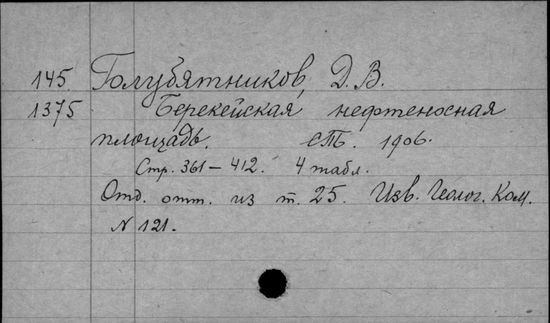 145. Голубятников, Д. В.
1375 Берекейская нефтеносная
площадь. СПБ. 1906.
Стр. 361–412. 4 табл.
Отд. отт. из т. 25. Изв. Геолог. Ком.
N 121.